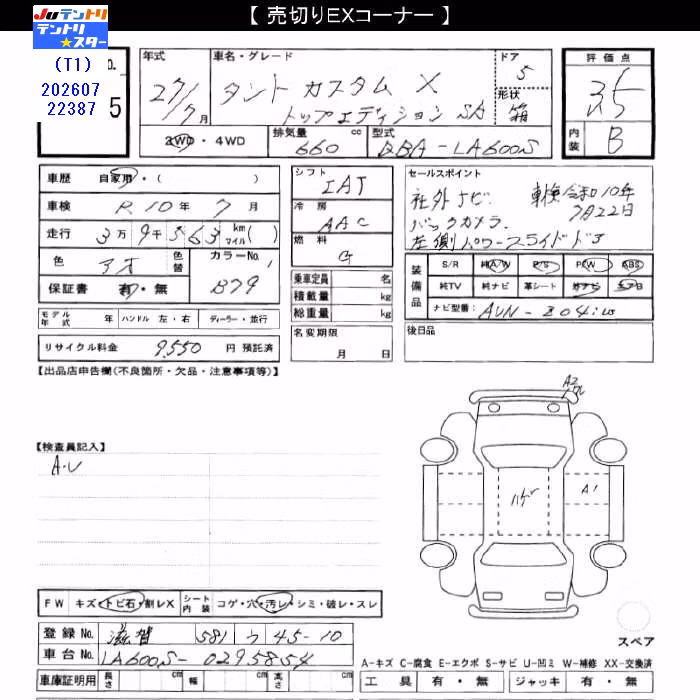 【 売切りEXコーナー 】
Juテントリ
テントリ★スター
(T1)
202607
22387
o.
5
年式
27/7月
車名・グレード
タント カスタム X
トップエディション SA
ドア
5
形状
箱
評価点
3.5
内装
B
2WD・4WD
排気量
660 cc
型式
DBA-LA600S
車歴 自家用・( )
車検 R10年7月
走行 3万9千563 km マイル( )
色
色替
カラーNo.
B79
保証書 有・無
モデル年式 年
ハンドル 左・右
ディーラー・並行
リサイクル料金 9,550 円 預託済
シフト
IAT
冷房
AAC
燃料
G
乗車定員 名
積載量 kg
総重量 kg
名変期限
月 日
セールスポイント
社外ナビ 車検令和10年
7月22日
バックカメラ
左側パワースライドドア
装備品
S/R 純A/W P/S P/W ABS
純TV 純ナビ 革シート 社ナビ エアB
ナビ型番: AVN-Z04iw
後日品
【出品店申告欄(不良箇所・欠品・注意事項等)】
【検査員記入】
A.U
A2
ハゲ
A1
FW キズ・トビ石・割レX
シート内装 コゲ・穴・汚レ・シミ・破レ・スレ
登録No. 滋賀 581 ウ 45-10
車台No. LA600S-0295854
車庫証明用 長さ cm 幅 cm 高さ cm
スペア
A-キズ C-腐食 E-エクボ S-サビ U-凹ミ W-補修 XX-交換済
工具 有・無 ジャッキ 有・無